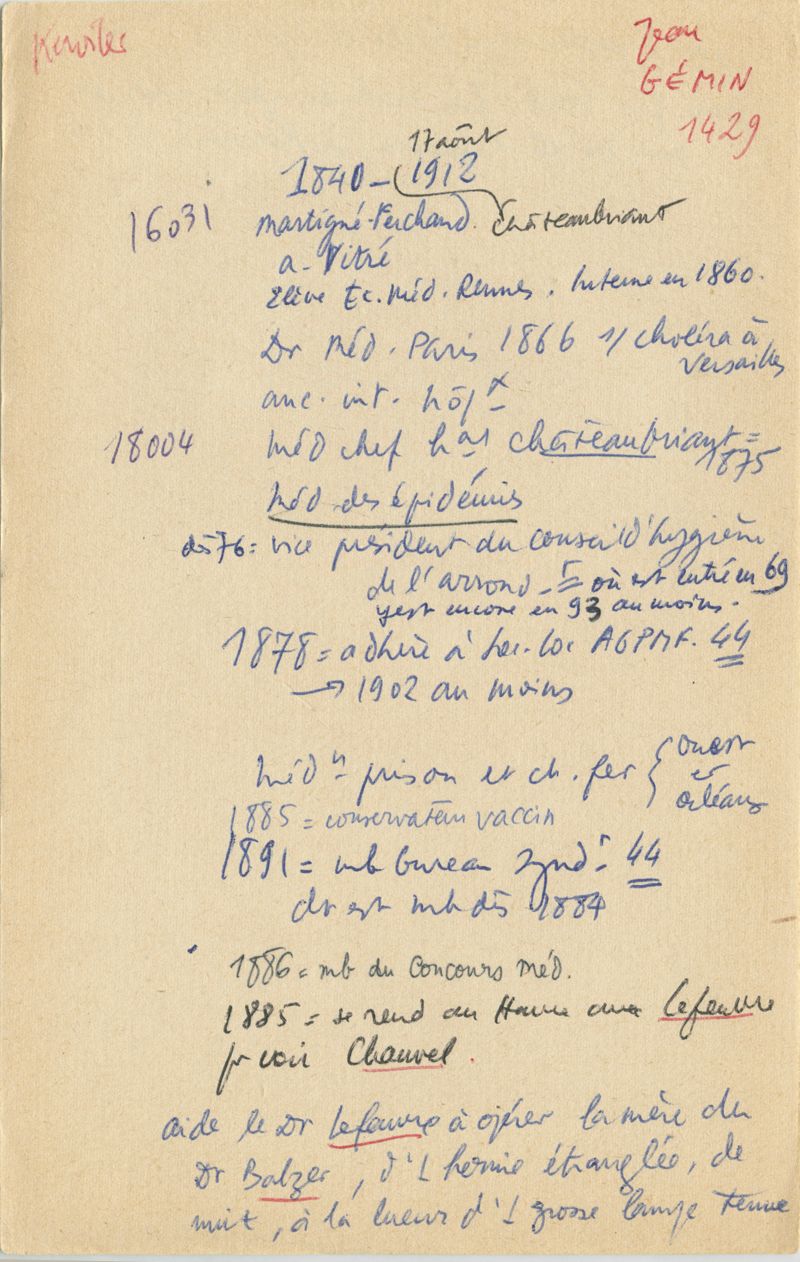 Kerviler
Jean
GÉMIN
1429
17 août
1840 - 1912
16031 Martigné-Ferchaud. Châteaubriant
a. Vitré
Elève Ec. Méd. Rennes. Interne en 1860.
Dr Méd. Paris 1866 s/ choléra à
Versailles
anc. int. hôpx
18004 Méd chef hal châteaubriant =
1875
Méd des épidémies
dès 76 = vice président du conseil d'hygiène
de l'arrond. où est entré en 69
y est encore en 93 au moins.
1878 = adhère à Soc. loc AGPMF. 44
→ 1902 au moins
Médn prison et ch. fer { Ouest
et
Orléans
1885 = conservateur vaccin
1891 = mb bureau Synd. 44
dt est mb dès 1884
1886 = mb du Concours Méd.
1885 = se rend au Havre avec Lefeuvre
pr voir Chauvel.
aide le Dr Lefeuvre à opérer la mère du
Dr Balzer, d'1 hernie étranglée, de
nuit, à la lueur d'1 grosse lampe tenue